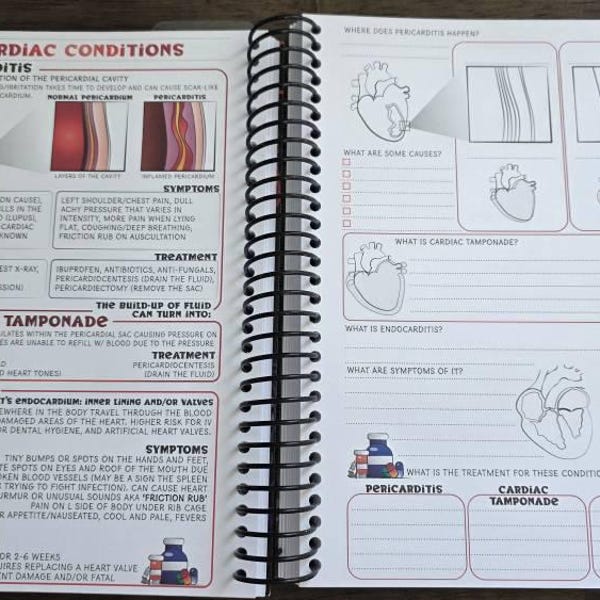 RDIAC CONDITIONS
DITIS
TION OF THE PERICARDIAL CAVITY
/IRRITATION TAKES TIME TO DEVELOP AND CAN CAUSE SCAR-LIKE
CARDIUM.
NORMAL PERICARDIUM PERICARDITIS
LAYERS OF THE CAVITY INFLAMED PERICARDIUM
SYMPTOMS
ON CAUSE),
LLS IN THE
D (LUPUS),
CARDIAC
KNOWN
LEFT SHOULDER/CHEST PAIN, DULL
ACHY PRESSURE THAT VARIES IN
INTENSITY, MORE PAIN WHEN LYING
FLAT, COUGHING/DEEP BREATHING,
FRICTION RUB ON AUSCULTATION
TREATMENT
EST X-RAY,
SSION)
IBUPROFEN, ANTIBIOTICS, ANTI-FUNGALS,
PERICARDIOCENTESIS (DRAIN THE FLUID),
PERICARDIECTOMY (REMOVE THE SAC)
THE BUILD-UP OF FLUID
CAN TURN INTO:
TAMPONADE
ULATES WITHIN THE PERICARDIAL SAC CAUSING PRESSURE ON
ES ARE UNABLE TO REFILL W/ BLOOD DUE TO THE PRESSURE
TREATMENT
D HEART TONES)
PERICARDIOCENTESIS
(DRAIN THE FLUID)
T'S ENDOCARDIUM: INNER LINING AND/OR VALVES
EWHERE IN THE BODY TRAVEL THROUGH THE BLOOD
DAMAGED AREAS OF THE HEART. HIGHER RISK FOR IV
OR DENTAL HYGIENE, AND ARTIFICIAL HEART VALVES.
SYMPTOMS
TINY BUMPS OR SPOTS ON THE HANDS AND FEET,
TE SPOTS ON EYES AND ROOF OF THE MOUTH DUE
OKEN BLOOD VESSELS (MAY BE A SIGN THE SPLEEN
TRYING TO FIGHT INFECTION). CAN CAUSE HEART
URMUR OR UNUSUAL SOUNDS AKA 'FRICTION RUB'
PAIN ON L SIDE OF BODY UNDER RIB CAGE
R APPETITE/NAUSEATED, COOL AND PALE, FEVERS
OR 2-6 WEEKS
UIRES REPLACING A HEART VALVE
ENT DAMAGE AND/OR FATAL
WHERE DOES PERICARDITIS HAPPEN?
WHAT ARE SOME CAUSES?
WHAT IS CARDIAC TAMPONADE?
WHAT IS ENDOCARDITIS?
WHAT ARE SYMPTOMS OF IT?
WHAT IS THE TREATMENT FOR THESE CONDITIO
PERICARDITIS
CARDIAC
TAMPONADE